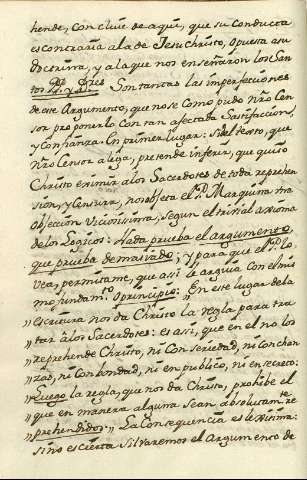 hende, Concluie de aqui, que su Conducta
es contraria ala de Jesu Christo, opuesta asu
Doctrina, y ala que nos enseñaron los San
tos PP. y Dres. Son tantas las imperfecciones
de este Argumento, que no se Como pudo Nro Cen
sor proponerlo Con tan afectada Satisfaccion,
y Confianza. En primer lugar: Si del texto, que
Nro Censor alega, pretende inferir, que quiso
Christo eximir alos Sacerdotes de toda reprehen
sion, y Censura, nos objeta el P. Marquina una
objecion Viciosissima, segun el trivial axioma
de los Logicos: Nada prueba el argumento,
que prueba demasiado; y para que el P. lo
vea, permitame, que assi le arguia con el mis
mo fundamto. o principio: „ En este lugar de la
„ escritura nos da Christo la regla para tra
„ tar alos Sacerdotes: es assi, que en el no los
„ reprehende Christo, ni Con seriedad, ni con chan
„ zas, ni con bondad, ni en publico, ni en secreto:
„ Luego la regla, que nos da Christo, prohibe el
„ que en manera alguna sean absolutamte re
„ prehendidos. „ La Consequencia es lexitima:
si no es cierta Salvaremos el Argumento de